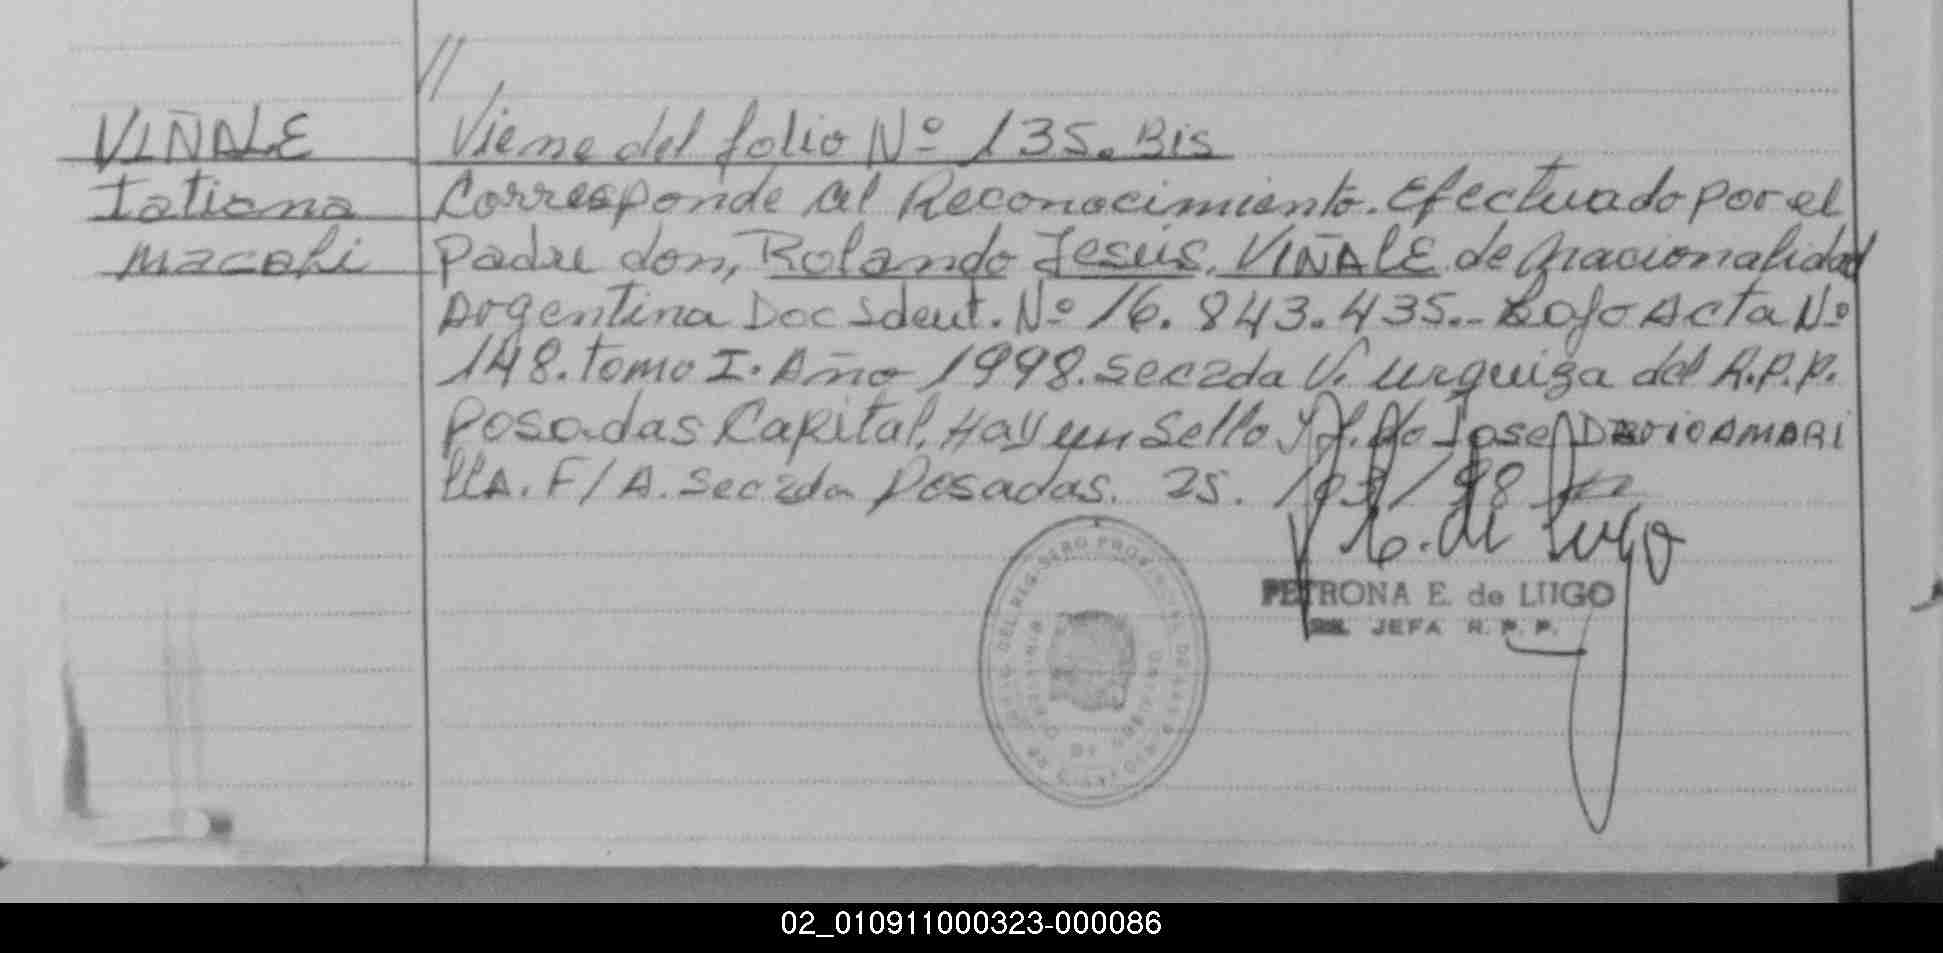 //
VIÑALE
Tatiana
Macahi
Viene del folio Nº 135. Bis
Corresponde al Reconocimiento. Efectuado por el
padre don, Rolando Jesús, VIÑALE de nacionalidad
Argentina Doc Ident. Nº 16.843.435.- Bajo Acta Nº
148. tomo I. Año 1998. sec 2da V. Urquiza del R.P.P.
Posadas Capital. Hay un Sello y f. do Jose Dario AMARI
lla. F/A. Sec 2da Posadas. 25. /03/98
P. E. de Lugo
PETRONA E. de LUGO
JEFA R. P. P.
DEL REGISTRO PROVINCIAL DE LAS
02_010911000323-000086